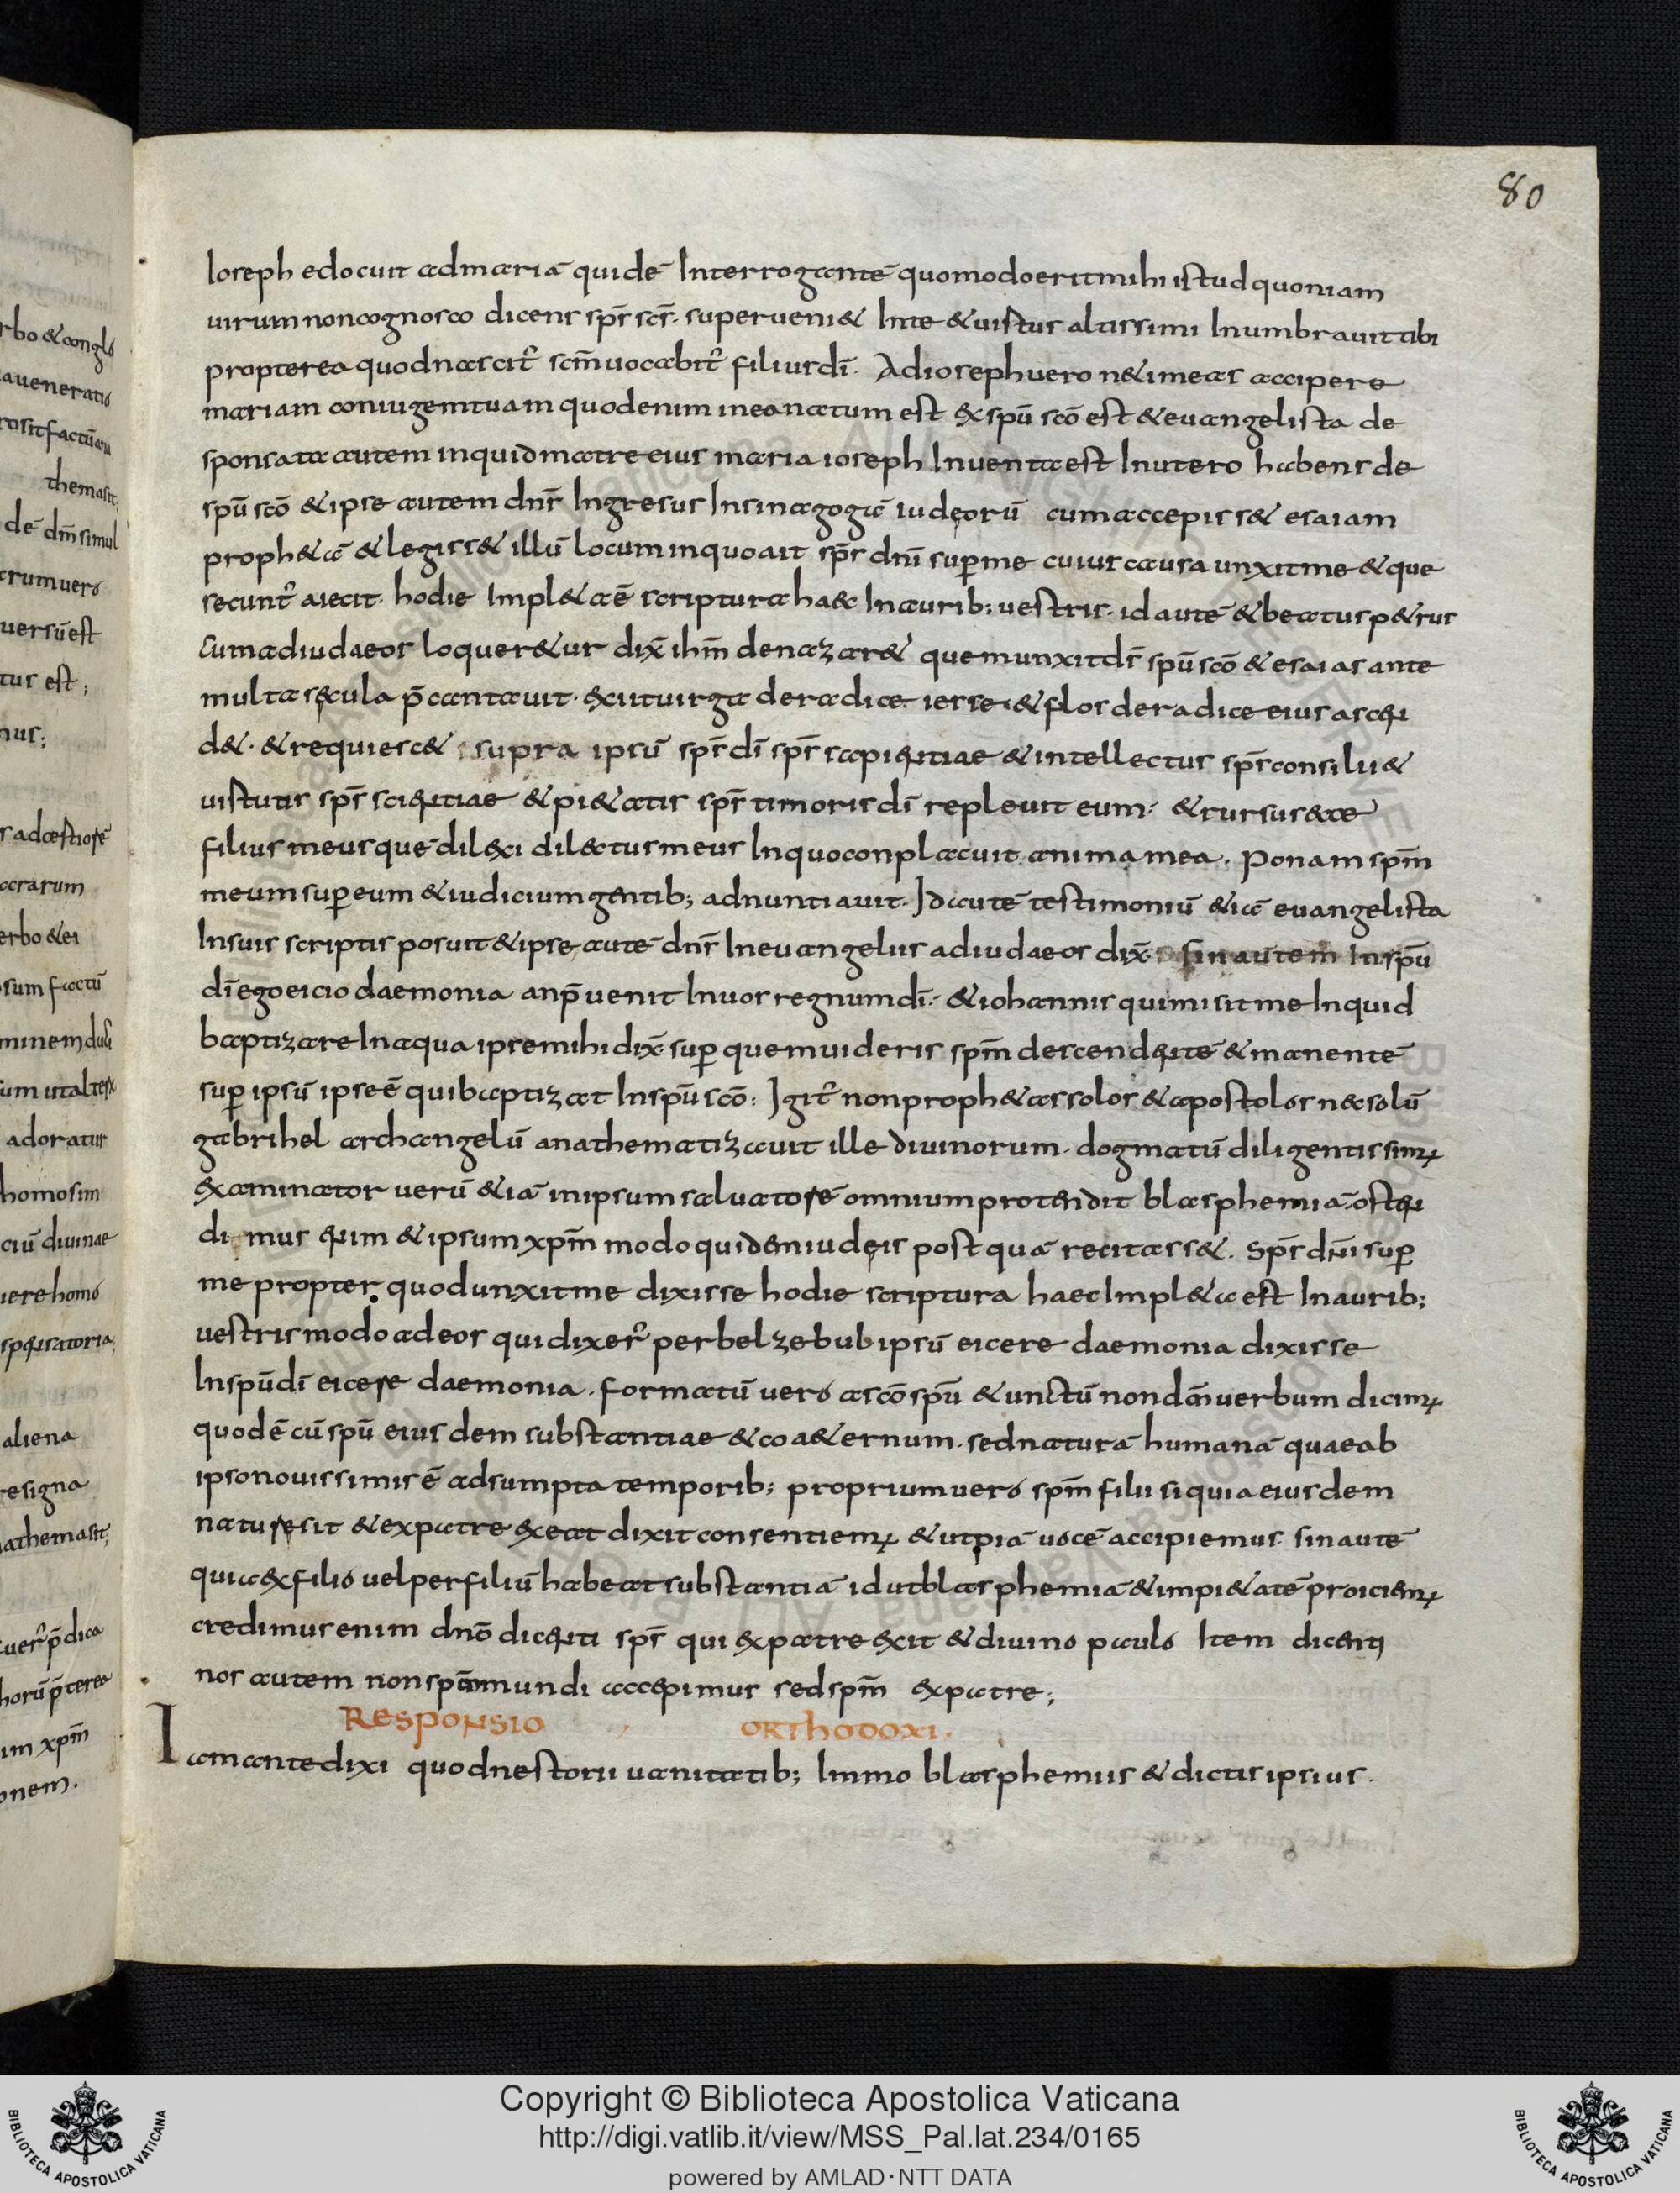 80
Ioseph edocuit ad mariā quidē Interrogantē quomodo erit mihi istud quoniam
uirum non cognosco dicens sp̄s sc̄s. superueni& Inte & uirtus altissimi Inumbrauit tibi
propterea quod nascit̉ sc̄m uocabit̉ filius dī. Ad ioseph uero n& imeas accipere
mariam coniugem tuam quod enim in ea natum est ex spū scō est & euangelista de
sponsata autem inquid matre eius maria ioseph Inuenta est Inutero habens de
spū scō & ipse autem dn̄s Ingresus Insinagogā iudęorū cum accepiss& esaiam
proph&ā & legiss& illū locum inquo ait sp̄s dn̄i sup̄ me cuius causa unxit me & que
secunt̉ aiecit. hodie Impl&a ē scriptura haec Inaurib; uestris. id autē & beatus p&rus
cum ad iudaeos loquer&ur dix̄ ih̄m de nazar& quem unxit ds̄ spū scō & esaias ante
multa sęcula p̄cantauit. exiit uirga de radice iesse. & flos de radice eius ascen
d&. & requiesc& supra ipsū sp̄s dī sp̄s sapientiae & intellectus sp̄s consilii &
uirtutis sp̄s scientiae & pi&atis sp̄s timoris dī repleuit eum. & rursus ecce
filius meus quē dilexi dilectus meus Inquo conplacuit anima mea. Ponam sp̄m
meum sup̄ eum & iudicium gentib; adnuntiauit. Id autē testimoniū &iā euangelista
Insuis scriptis posuit & ipse autē dn̄s Ineuangeliis ad iudaeos dix̄ sin autem Inspū
dī ego eicio daemonia an p̄uenit Inuos regnum dī. & iohannis qui misit me Inquid
baptizare Inaqua ipse mihi dix̄ sup̄ quem uideris sp̄m descendentē & manentē
sup̄ ipsū ipse ē qui baptizat Inspū scō. Igit̉ non proph&as solos & apostolos nec solū
gabrihel archangelū anathematizauit ille diuinorum. dogmatū diligentissimꝰ
examinator uerū &iā in ipsum saluatorē omnium protendit blasphemiā. osten
dimus enim & ipsum xp̄m modo quidem iudęis post quā recitass&. sp̄s dn̄i sup̄
me propter quod unxit me dixisse hodie scriptura haec Impl&a est Inaurib;
uestris modo ad eos qui dixer̉ per belzebub ipsū eicere daemonia dixisse
Inspū dī eicere daemonia. formatū uero a scō spū & unctū non dm̄ uerbum dicimꝰ
quod ē cū spū eiusdem substantiae & coa&ernum. sed naturā humanā quae ab
ipso nouissimis ē adsumpta temporib; proprium uero sp̄m filii si quia eiusdem
naturę sit & ex patre exeat dixit consentiemꝰ & ut piā uocē accipiemus. sin autē
quia ex filio uel per filiū habeat substantiā id ut blasphemiā & impi&atē proiciemꝰ
credimus enim dn̄o dicenti sp̄s qui ex patre exit & diuino paulo Item dicenti
nos autem non sp̄m mundi accepimus sed sp̄m ex patre;
Responsio orthodoxi.
Iam ante dixi quod nestorii uanitatib; Immo blasphemiis & dictis ipsius.
Copyright © Biblioteca Apostolica Vaticana
http://digi.vatlib.it/view/MSS_Pal.lat.234/0165
powered by AMLAD·NTT DATA
BIBLIOTECA APOSTOLICA VATICANA
BIBLIOTECA APOSTOLICA VATICANA